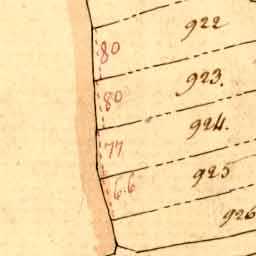 922
80
923.
80
924.
77
925
6.6
926